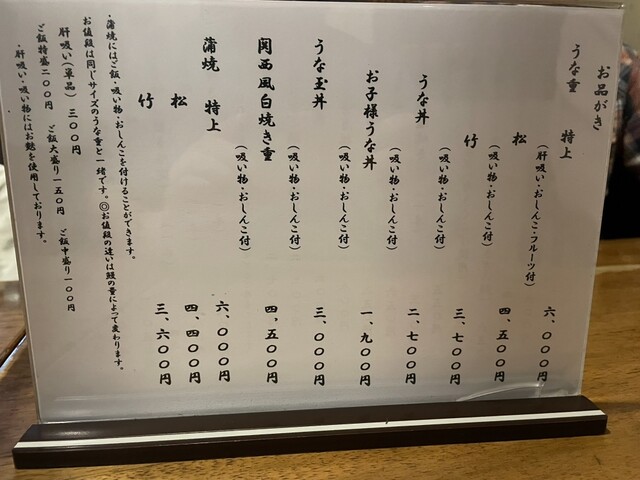 お品がき
うな重
特上
(肝吸い・おしんこ・フルーツ付)
六、〇〇〇円
松
(吸い物・おしんこ付)
四、五〇〇円
竹
(吸い物・おしんこ付)
三、七〇〇円
うな丼
(吸い物・おしんこ付)
二、七〇〇円
お子様うな丼
(吸い物・おしんこ付)
一、九〇〇円
うな玉丼
(吸い物・おしんこ付)
三、〇〇〇円
関西風白焼き重
四、五〇〇円
蒲焼 特上
六、〇〇〇円
松
四、四〇〇円
竹
三、六〇〇円
・蒲焼にはご飯・吸い物・おしんこを付けることができます。
お値段は同じサイズのうな重と一緒です。◎お値段の違いは鰻の量によって変わります。
肝吸い(単品) 三〇〇円
ご飯特盛二〇〇円 ご飯大盛り一五〇円 ご飯中盛り一〇〇円
・肝吸い・吸い物にはお麩を使用しております。